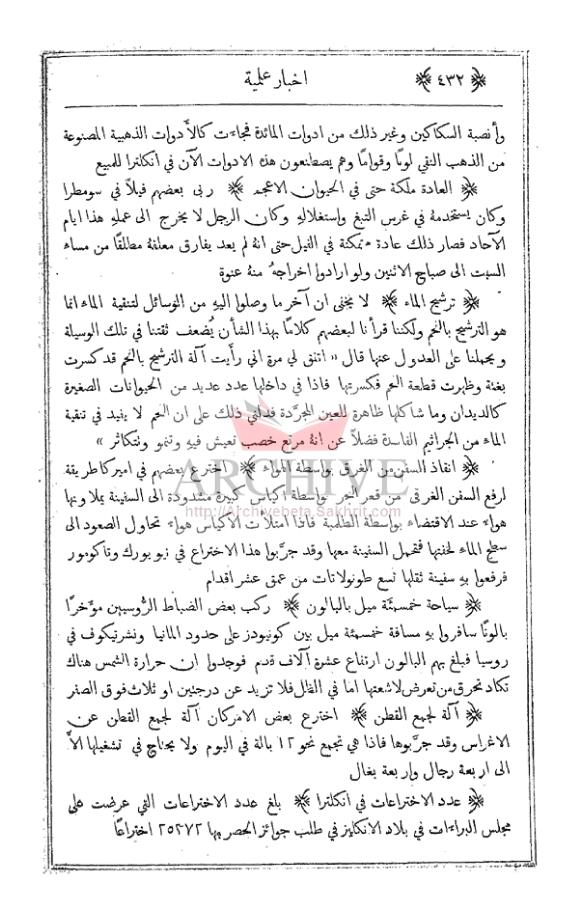 ﴿ ٤٣٢ ﴾ اخبار علمية
وأنصبة السكاكين وغير ذلك من ادوات المائدة فجاءَت كالأَدوات الذهبية المصنوعة
من الذهب النقي لونًا وقوامًا وهم يصطنعون هذه الادوات الآن في انكلترا للبيع
﴿ العادة ملكة حتى في الحيوان الاعجم ﴾ ربى بعضهم فيلاً في سومطرا
وكان يستخدمهُ في غرس التبغ واستغلالهِ وكان الرجل لا يخرج الى عملهِ هذا ايام
الآحاد فصار ذلك عادة متمكنة في الفيل حتى انهُ لم يعد يفارق معلفهُ مطلقًا من مساء
السبت الى صباح الاثنين ولو ارادوا اخراجهُ منهُ عنوة
﴿ ترشيح الماء ﴾ لا يخفى ان آخر ما وصلوا اليهِ من الوسائل لتنقية الماء انما
هو الترشيح بالفحم ولكننا قرأنا لبعضهم كلامًا بهذا الشأن يُضعف ثقتنا في تلك الوسيلة
ويحملنا على العدول عنها قال « اتفق لي مرة اني رأيت آلة الترشيح بالفحم قد كسرت
بغتة وظهرت قطعة الفحم فكسرتها فاذا في داخلها عدد عديد من الحيوانات الصغيرة
كالديدان وما شاكلها ظاهرة للعين المجرَّدة فدلني ذلك على ان الفحم لا يفيد في تنقية
الماء من الجراثيم الفاسدة فضلاً عن انهُ مرتع خصب تعيش فيهِ وتنمو وتتكاثر »
﴿ انقاذ السفن من الغرق بواسطة الهواء ﴾ اخترع بعضهم في اميركا طريقة
لرفع السفن الغرقى من قعر البحر بواسطة اكياس كبيرة مشدودة الى السفينة يملأونها
هواء عند الاقتضاء بواسطة الطلمبة فاذا امتلأت الاكياس هواء تحاول الصعود الى
سطح الماء لخفتها فتحمل السفينة معها وقد جرَّبوا هذا الاختراع في نيويورك وتاكومور
فرفعوا بهِ سفينة ثقلها تسع طونولاتات من عمق عشر اقدام
﴿ سياحة خمسمئة ميل بالبالون ﴾ ركب بعض الضباط الرُّوسيين مؤخرًا
بالونًا سافروا بهِ مسافة خمسمئة ميل بين كونيودز على حدود المانيا ونشرتيكوف في
روسيا فبلغ بهم البالون ارتفاع عشرة آلاف قدم فوجدوا ان حرارة الشمس هناك
تكاد تحرق من تعرض لاشعتها اما في الظل فلا تزيد عن درجتين او ثلاث فوق الصفر
﴿ آلة لجمع القطن ﴾ اخترع بعض الامركان آلة لجمع القطن عن
الاغراس وقد جرَّبوها فاذا هي تجمع نحو ١٢ بالة في اليوم ولا يحتاج في تشغيلها الاَّ
الى اربعة رجال واربعة بغال
﴿ عدد الاختراعات في انكلترا ﴾ بلغ عدد الاختراعات التي عرضت على
مجلس البراءات في بلاد الانكليز في طلب جوائز الحصر بها ٢٥٢٧٢ اختراعًا
ARCHIVE
http://Archivebeta.Sakhrit.com